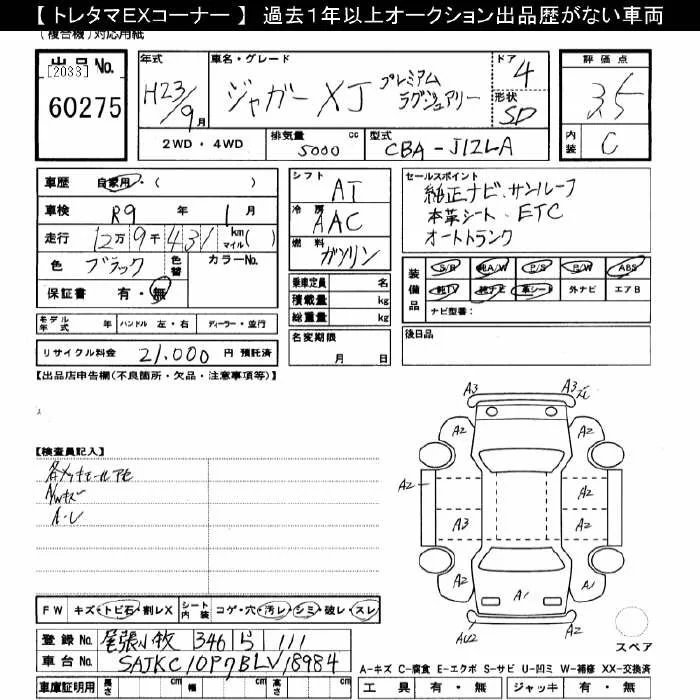 【 トレタマEXコーナー 】 過去1年以上オークション出品歴がない車両
(複合機)対応用紙
出品No.
[2033]
60275
年式
H23/9月
車名・グレード
ジャガー XJ プレミアム
ラグジュアリー
ドア
4
形状
SD
評価点
3.5
内装
C
2WD・4WD
排気量
5000 cc
型式
CBA-J12LA
車歴 自家用・( )
車検 R9 年 1 月
走行 12万9千431 km マイル( )
色 ブラック 色替 カラーNo.
保証書 有・無
シフト AT
冷房 AAC
燃料 ガソリン
乗車定員 名
積載量 kg
総重量 kg
名変期限
月 日
セールスポイント
純正ナビ、サンルーフ
本革シート、ETC
オートトランク
装備品
S/R 純A/W P/S P/W ABS
純TV 純ナビ 革シート 外ナビ エアB
ナビ型番:
後日品
モデル年式 年 ハンドル 左・右 ディーラー・並行
リサイクル料金 21,000 円 預託済
【出品店申告欄(不良箇所・欠品・注意事項等)】
【検査員記入】
A/Wキズ
A3 A3
A2 A2
A2 A2 A2
A3 A2
A1
FW キズ・トビ石・割レX シート内装 コゲ・穴・汚レ・シミ・破レ・スレ
スペア
登録No. 尾張小牧 346 る 111
車台No. SAJKC10P7BLV18984
A-キズ C-腐食 E-エクボ S-サビ U-凹ミ W-補修 XX-交換済
車庫証明用 長さ cm 幅 cm 高さ cm
工具 有・無 ジャッキ 有・無